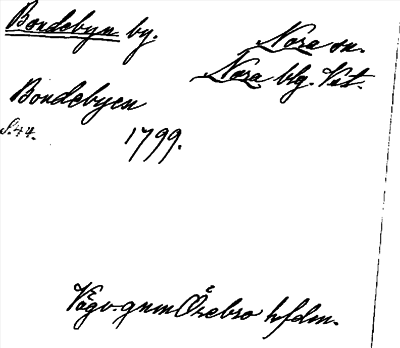 Bondebyn by.
Nora sn.
Nora blg. Vst.
Bondebyen
S. 44.
1799.
Vägv. gnm Örebro hfdm.